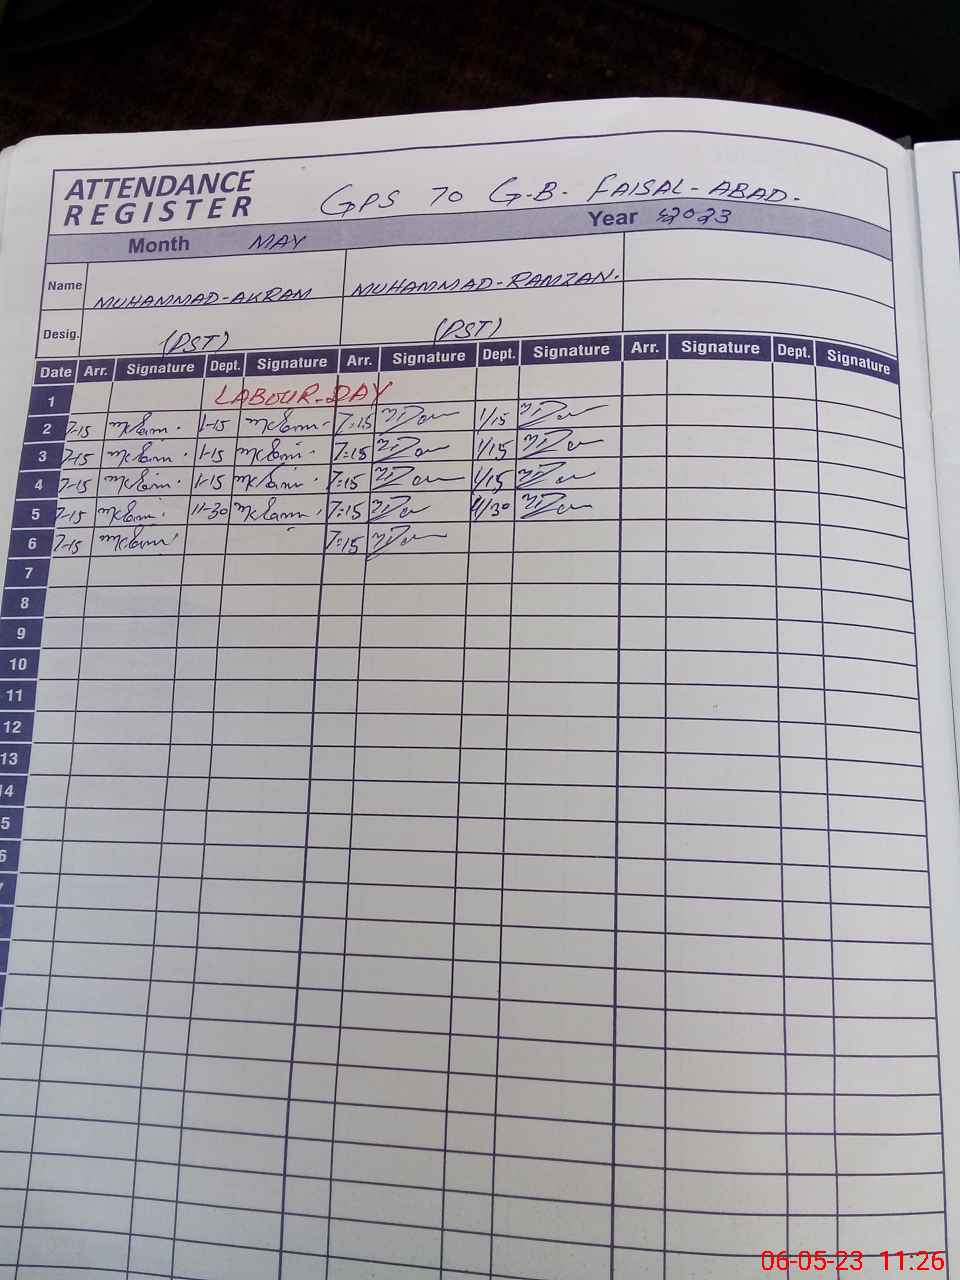 ATTENDANCE
REGISTER
GPS 70 G-B- FAISAL-ABAD-
Month MAY Year 2023
Name MUHAMMAD-AKRAM MUHAMMAD-RAMZAN.
Desig. (PST) (PST)
Date Arr. Signature Dept. Signature Arr. Signature Dept. Signature Arr. Signature Dept. Signature
1 LABOUR-DAY
2 7-15 1-15 7:15 1/15
3 7-15 1-15 7:15 1/15
4 7-15 1-15 7:15 1/15
5 7-15 11-30 7:15 11/30
6 7-15 7:15
7
8
9
10
11
12
13
14
5
6
06-05-23 11:26